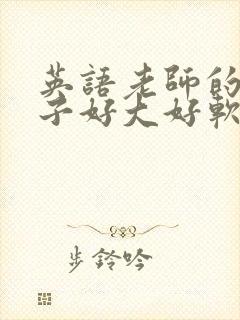 英語老師的
子好大好軟
步鈴吟